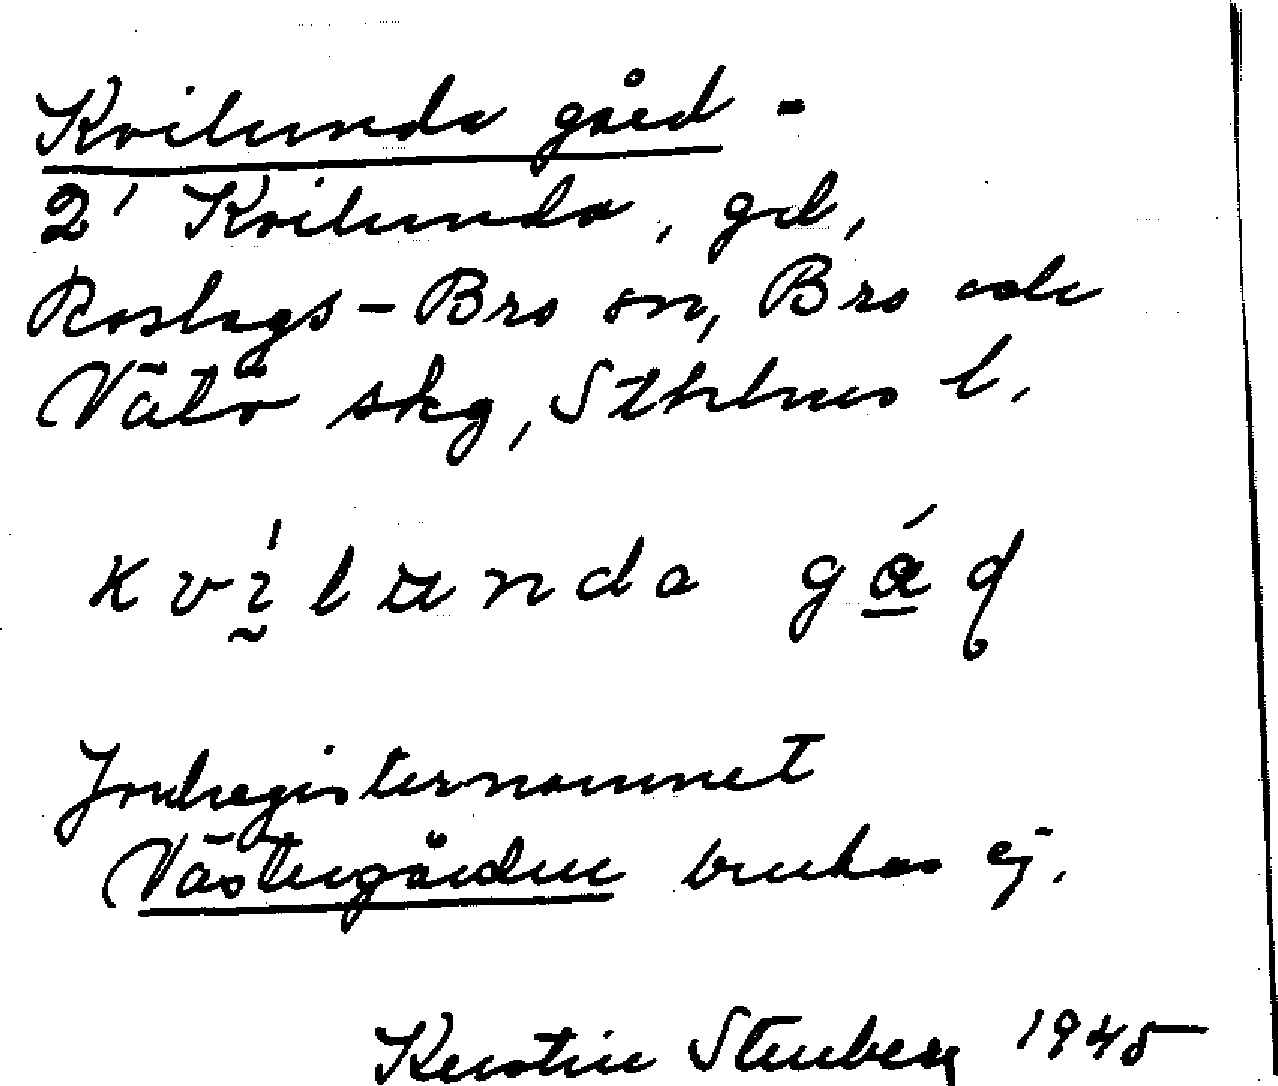 Kvilunda gård -
2¹ Kvilunda, gd,
Roslags-Bro sn, Bro och
Vätö skg, Sthlms l.
Jordregisternamnet
Västergården brukas ej.
Kerstin Stenberg 1945